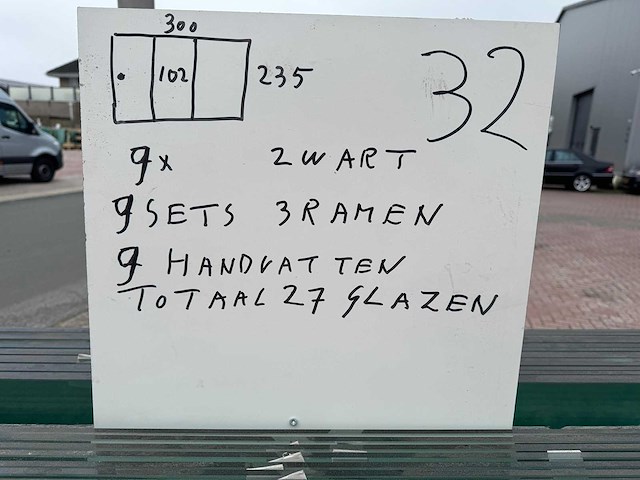 300
102
235
32
9x ZWART
9 SETS 3 RAMEN
9 HANDVATTEN
TOTAAL 27 GLAZEN